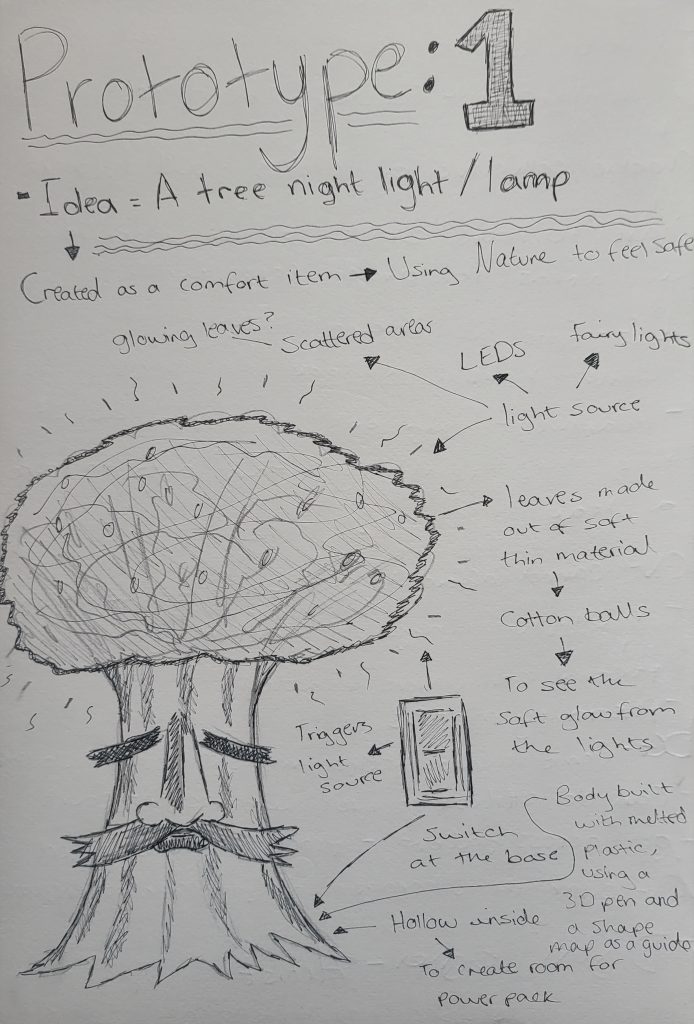 Prototype: 1
- Idea = A tree night light / lamp
Created as a comfort item → Using Nature to feel safe
glowing leaves? Scattered areas
LEDS
fairy lights
light source
leaves made
out of soft
thin material
Cotton balls
To see the
soft glow from
the lights
Triggers
light
source
Switch
at the base
Body built
with melted
plastic,
using a
3D pen and
a shape
map as a guide
Hollow inside
To create room for
power pack